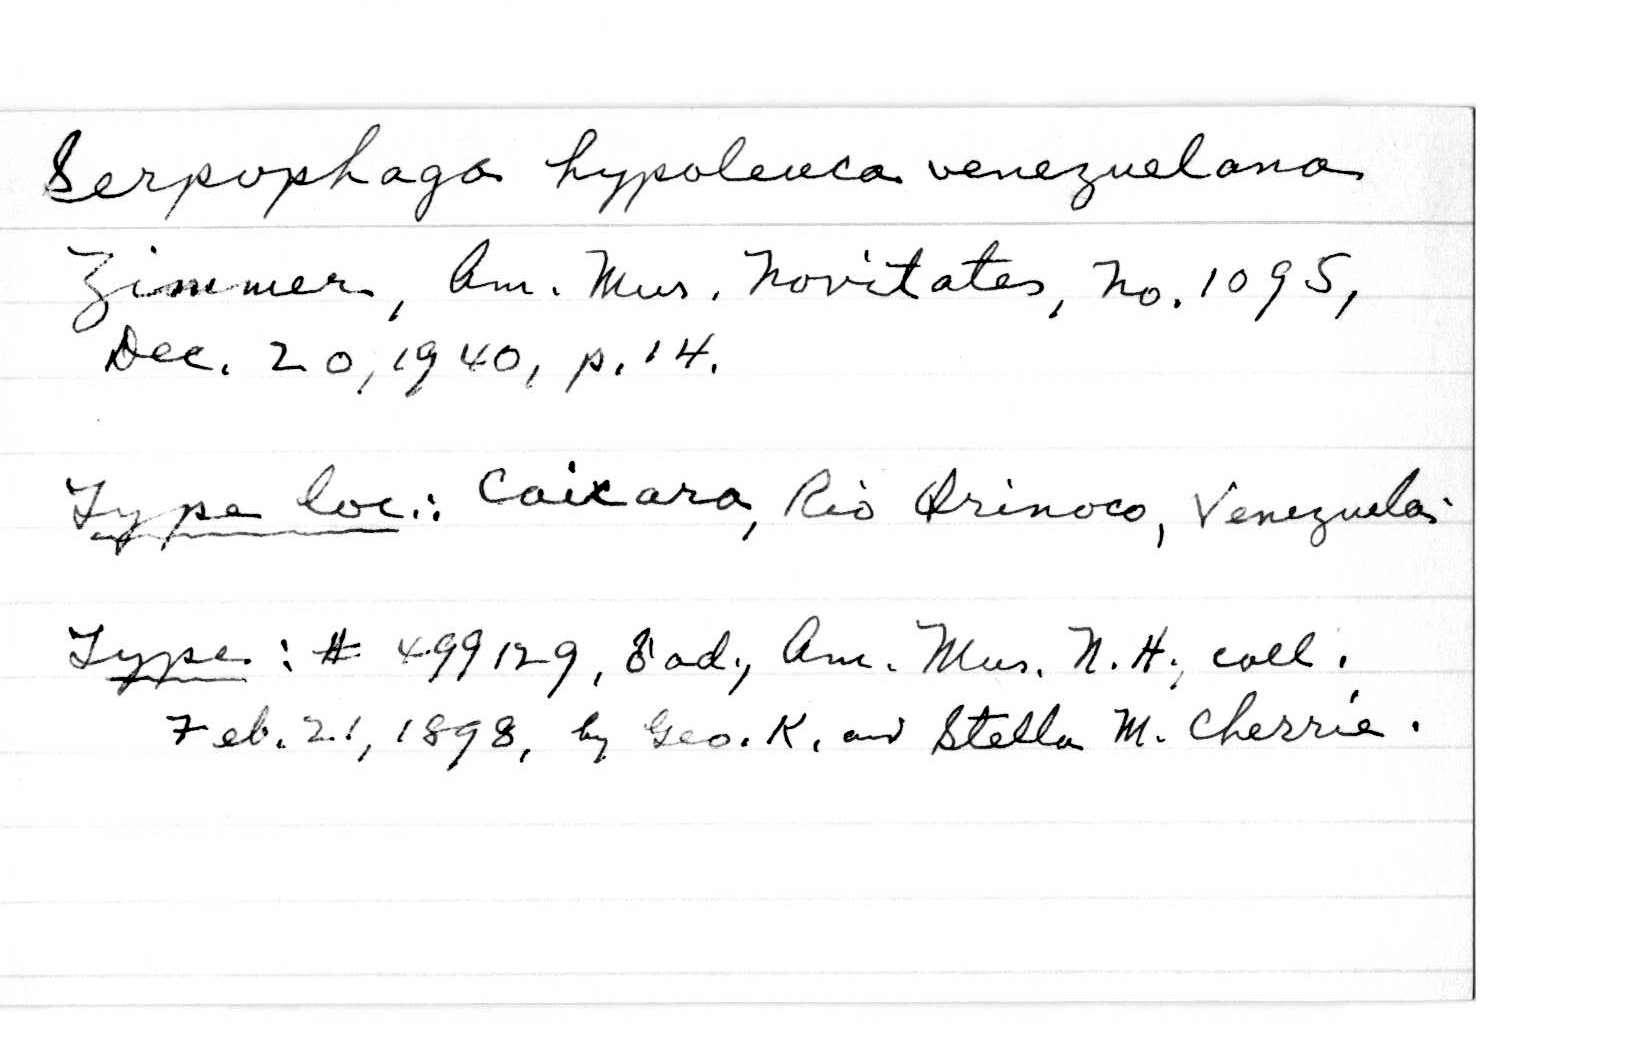 Serpophaga hypoleuca venezuelana
Zimmer, Am. Mus. Novitates, No. 1095,
Dec. 20, 1940, p. 14.
Type loc.: Caicara, Rio Orinoco, Venezuela.
Type: # 499129, ♂ ad., Am. Mus. N. H., coll.
Feb. 21, 1898, by Geo. K. and Stella M. Cherrie.